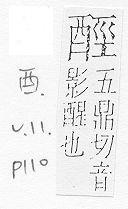 五鼎切音
影醒也
酉.
v.11.
p110